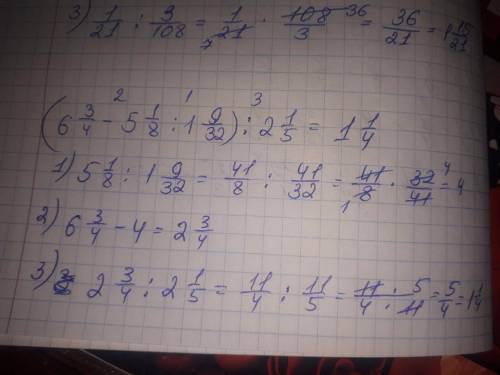 3) 1/21 : 3/108 = 1/21 7 · 108 36/3 = 36/21 = 1 15/21
2 1 3
(6 3/4 - 5 1/8 : 1 9/32) : 2 1/5 = 1 1/4
1) 5 1/8 : 1 9/32 = 41/8 : 41/32 = 41/8 1 · 32 4/41 = 4
2) 6 3/4 - 4 = 2 3/4
3) 2 3/4 : 2 1/5 = 11/4 : 11/5 = 11 · 5/4 · 11 = 5/4 = 1 1/4